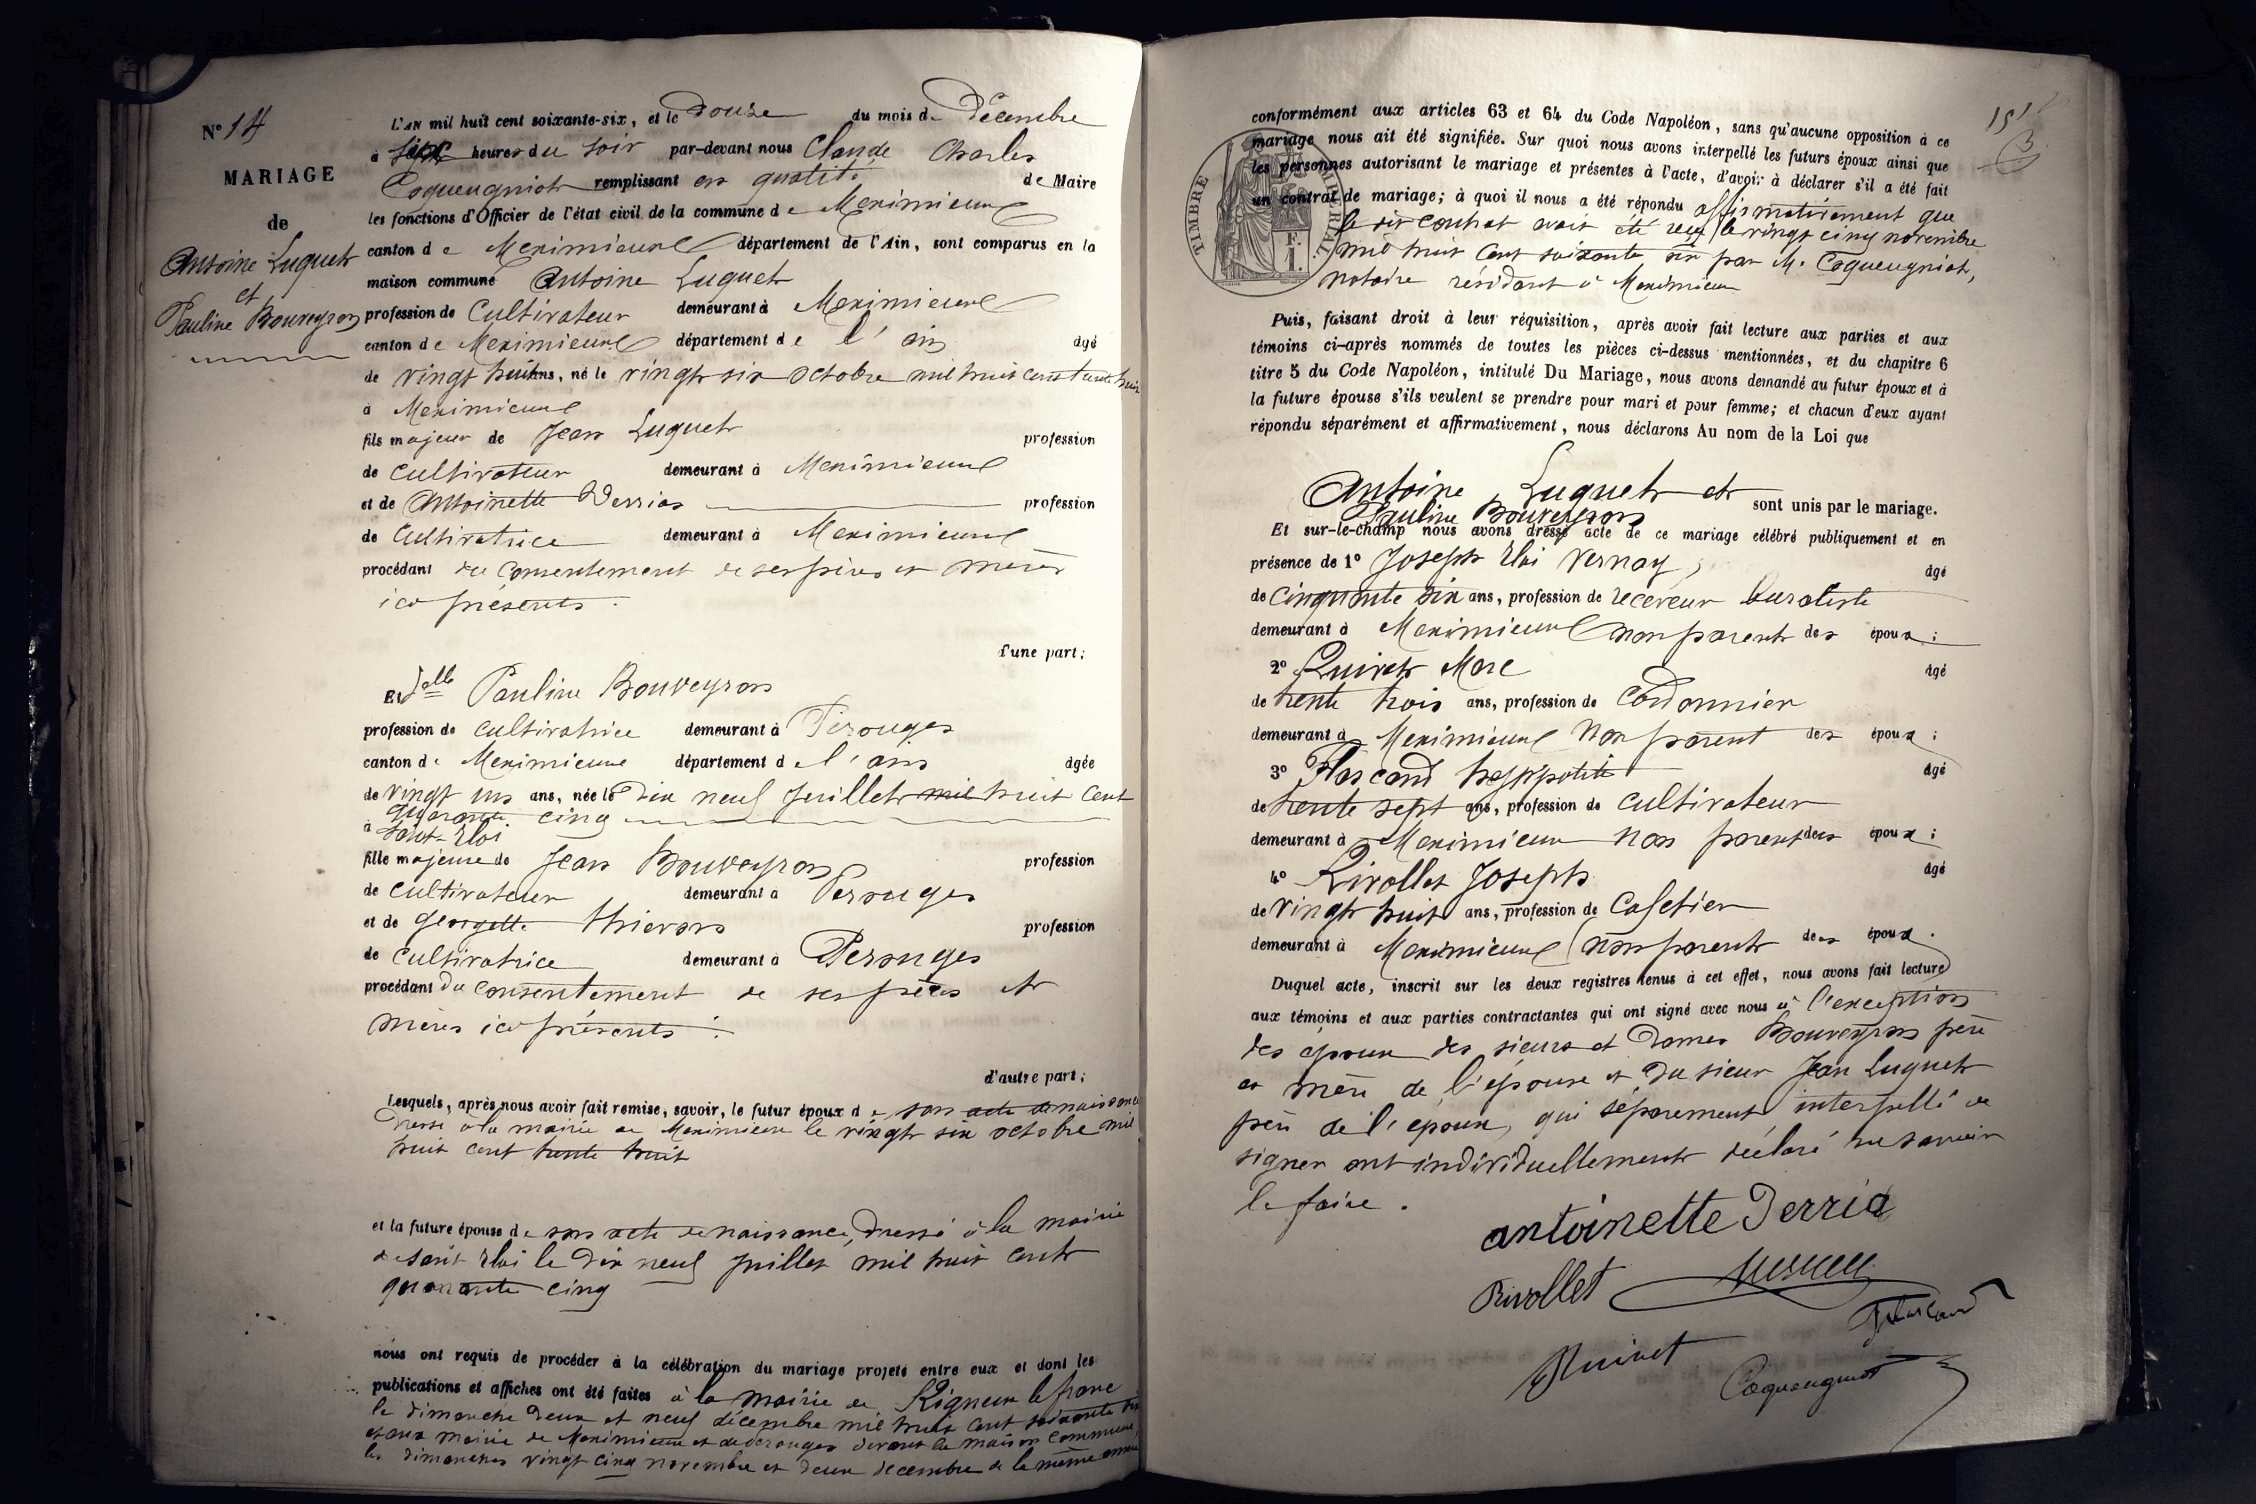 N° 14
MARIAGE
de
Antoine Luquet
et
Pauline Bouveyron
L'AN mil huit cent soixante-six, et le douze du mois de Décembre
à heures du soir par-devant nous Claude Charles
Coqueugniot remplissant en qualité de Maire
les fonctions d'Officier de l'état civil de la commune de Meximieux
canton de Meximieux département de l'Ain, sont comparus en la
maison commune Antoine Luquet
profession de Cultivateur demeurant à Meximieux
canton de Meximieux département de l'ain âgé
de vingt huit ans, né le vingt six octobre mil huit cent trente huit
à Meximieux
fils majeur de Jean Luquet profession
de cultivateur demeurant à Meximieux
et de Antoinette Derrias profession
de Cultivatrice demeurant à Meximieux
procédant du consentement de ses pères et mères
ici présents.
d'une part;
Et dlle Pauline Bouveyron
profession de cultivatrice demeurant à Pérouges
canton de Meximieux département de l'ain âgée
de vingt un ans, née le dix neuf juillet mil huit cent
quarante cinq
à Saint-Eloi
fille majeure de Jean Bouveyron profession
de cultivateur demeurant à Perouges
et de Georgette Thievon profession
de cultivatrice demeurant à Perouges
procédant du consentement de ses pères et
mères ici présents.
d'autre part;
Lesquels, après nous avoir fait remise, savoir, le futur époux de son acte de naissance
dressé à la mairie de Meximieux le vingt six octobre mil
huit cent trente huit
et la future épouse de son acte de naissance, dressé à la mairie
de saint Eloi le dix neuf juillet mil huit cent
quarante cinq
nous ont requis de procéder à la célébration du mariage projeté entre eux et dont les
publications et affiches ont été faites à la mairie de Rigneux le franc
le dimanche deux et neuf décembre mil huit cent soixante six
et aux mairie de Meximieux et de Perouges devant la maison commune,
les dimanches vingt cinq novembre et deux decembre de la même année
151
3
TIMBRE IMPÉRIAL
F.
1.
conformément aux articles 63 et 64 du Code Napoléon, sans qu'aucune opposition à ce
mariage nous ait été signifiée. Sur quoi nous avons interpellé les futurs époux ainsi que
les personnes autorisant le mariage et présentes à l'acte, d'avoir à déclarer s'il a été fait
un contrat de mariage; à quoi il nous a été répondu affirmativement que
le dit contrat avait été reçu le vingt cinq novembre
mil huit cent soixante six par M. Coqueugniot,
notaire résidant à Meximieux
Puis, faisant droit à leur réquisition, après avoir fait lecture aux parties et aux
témoins ci-après nommés de toutes les pièces ci-dessus mentionnées, et du chapitre 6
titre 5 du Code Napoléon, intitulé Du Mariage, nous avons demandé au futur époux et à
la future épouse s'ils veulent se prendre pour mari et pour femme; et chacun d'eux ayant
répondu séparément et affirmativement, nous déclarons Au nom de la Loi que
Antoine Luquet et
Pauline Bouveyron sont unis par le mariage.
Et sur-le-champ nous avons dressé acte de ce mariage célébré publiquement et en
présence de 1° Joseph Eloi Vernay, âgé
de cinquante six ans, profession de receveur buraliste
demeurant à Meximieux non parent des époux;
2° Quivet Marc âgé
de trente trois ans, profession de Cordonnier
demeurant à Meximieux non parent des époux;
3° Flascand hyppolite âgé
de trente sept ans, profession de cultivateur
demeurant à Meximieux non parent des époux;
4° Rivollet Joseph âgé
de vingt huit ans, profession de Cafetier
demeurant à Meximieux non parent des époux.
Duquel acte, inscrit sur les deux registres tenus à cet effet, nous avons fait lecture
aux témoins et aux parties contractantes qui ont signé avec nous à l'exception
des époux des sieurs et Dames Bouveyron père
et mère de l'épouse et du sieur Jean Luquet
père de l'époux, qui séparement interpellé de
signer ont individuellement déclaré ne savoir
le faire.
antoinette Derria
Rivollet
Flascand
Quivet
Coqueugniot